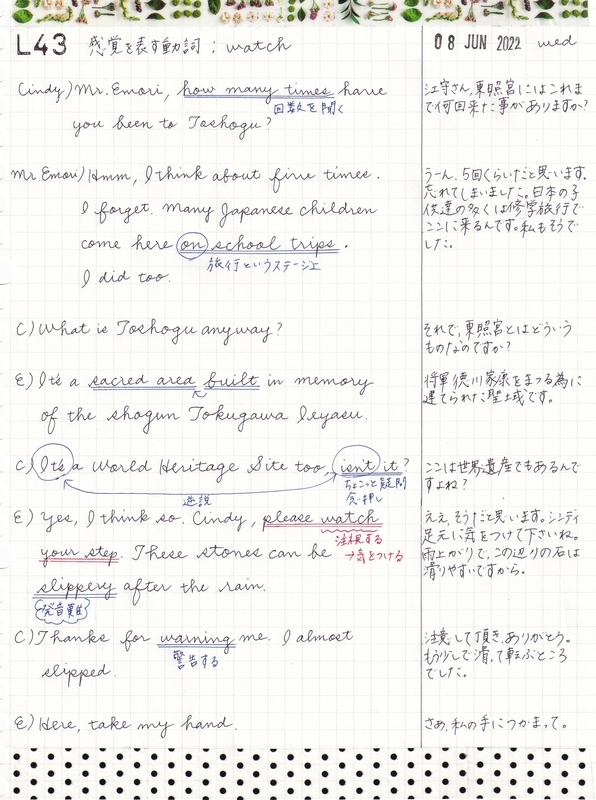 L43 感覚を表す動詞; watch
08 JUN 2022 wed
Cindy) Mr. Emori, how many times have
回数を聞く
you been to Toshogu?
江守さん, 東照宮にはこれま
で何回来た事がありますか?
Mr. Emori) Hmm, I think about five times.
I forget. Many Japanese children
come here on school trips.
旅行というステージ上
I did too.
うーん, 5回くらいだと思います.
忘れてしまいました。日本の子
供達の多くは修学旅行で
ここに来るんです。私もそうで
した。
C) What is Toshogu anyway?
それで, 東照宮とはどういう
ものなのですか?
E) It's a sacred area built in memory
of the shogun Tokugawa Ieyasu.
将軍徳川家康をまつる為に
建てられた聖域です。
C) It's a World Heritage Site too, isn't it?
逆説
ちょこっと疑問
念押し
ここは世界遺産でもあるんで
すよね?
E) Yes, I think so. Cindy, please watch
注視する
your step. These stones can be
→気をつける
slippery after the rain.
発音難
ええ, そうだと思います。シンディ
足元に気をつけて下さいね。
雨上がりで, この辺りの石は
滑りやすいですから。
C) Thanks for warning me. I almost
警告する
slipped.
注意して頂き, ありがとう。
もう少しで滑って転ぶところ
でした。
E) Here, take my hand.
さあ, 私の手につかまって。